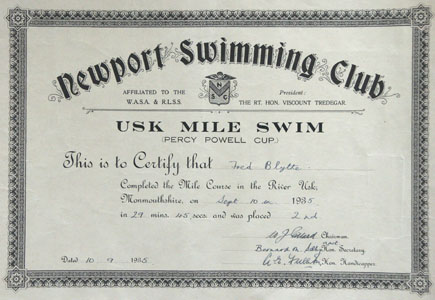 Newport Swimming Club
AFFILIATED TO THE
W.A.S.A. & R.L.S.S.
President:
THE RT. HON. VISCOUNT TREDEGAR
USK MILE SWIM
(PERCY POWELL CUP)
This is to Certify that Fred Blythe
Completed the Mile Course in the River Usk,
Monmouthshire, on Sept 10th 1935
in 29 mins. 45 secs. and was placed 2nd
Chairman
Hon. Secretary
Dated 10. 9. 1935
Hon. Handicapper